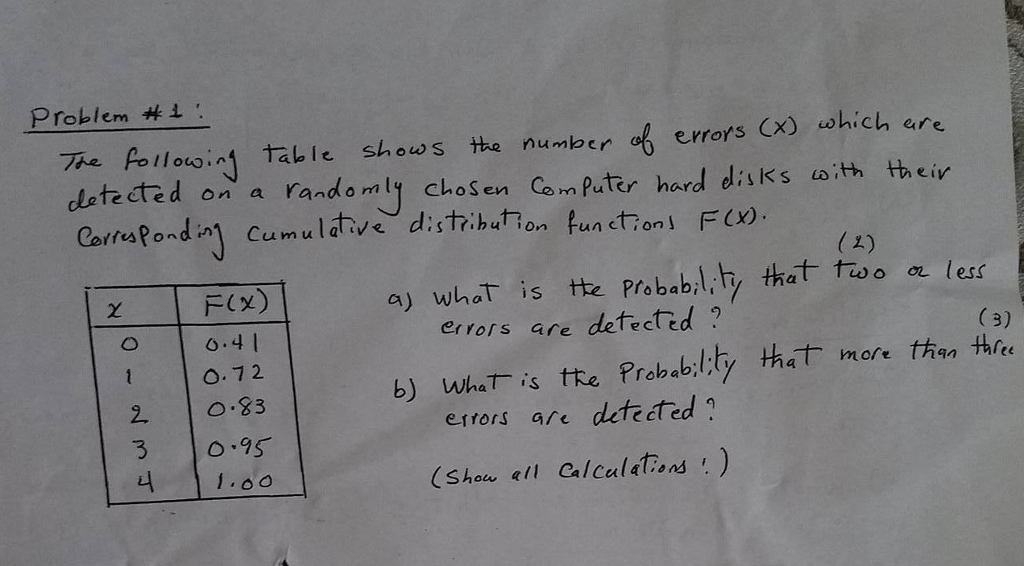 Problem #1:
The following Table shows the number of errors (X) which are
detected on a randomly chosen Computer hard disks with their
Corresponding cumulative distribution functions F(X).
x F(x)
0 0.41
1 0.72
2 0.83
3 0.95
4 1.00
(2)
a) What is the Probability that two or less
errors are detected?
(3)
b) What is the Probability that more than three
errors are detected?
(Show all Calculations!)